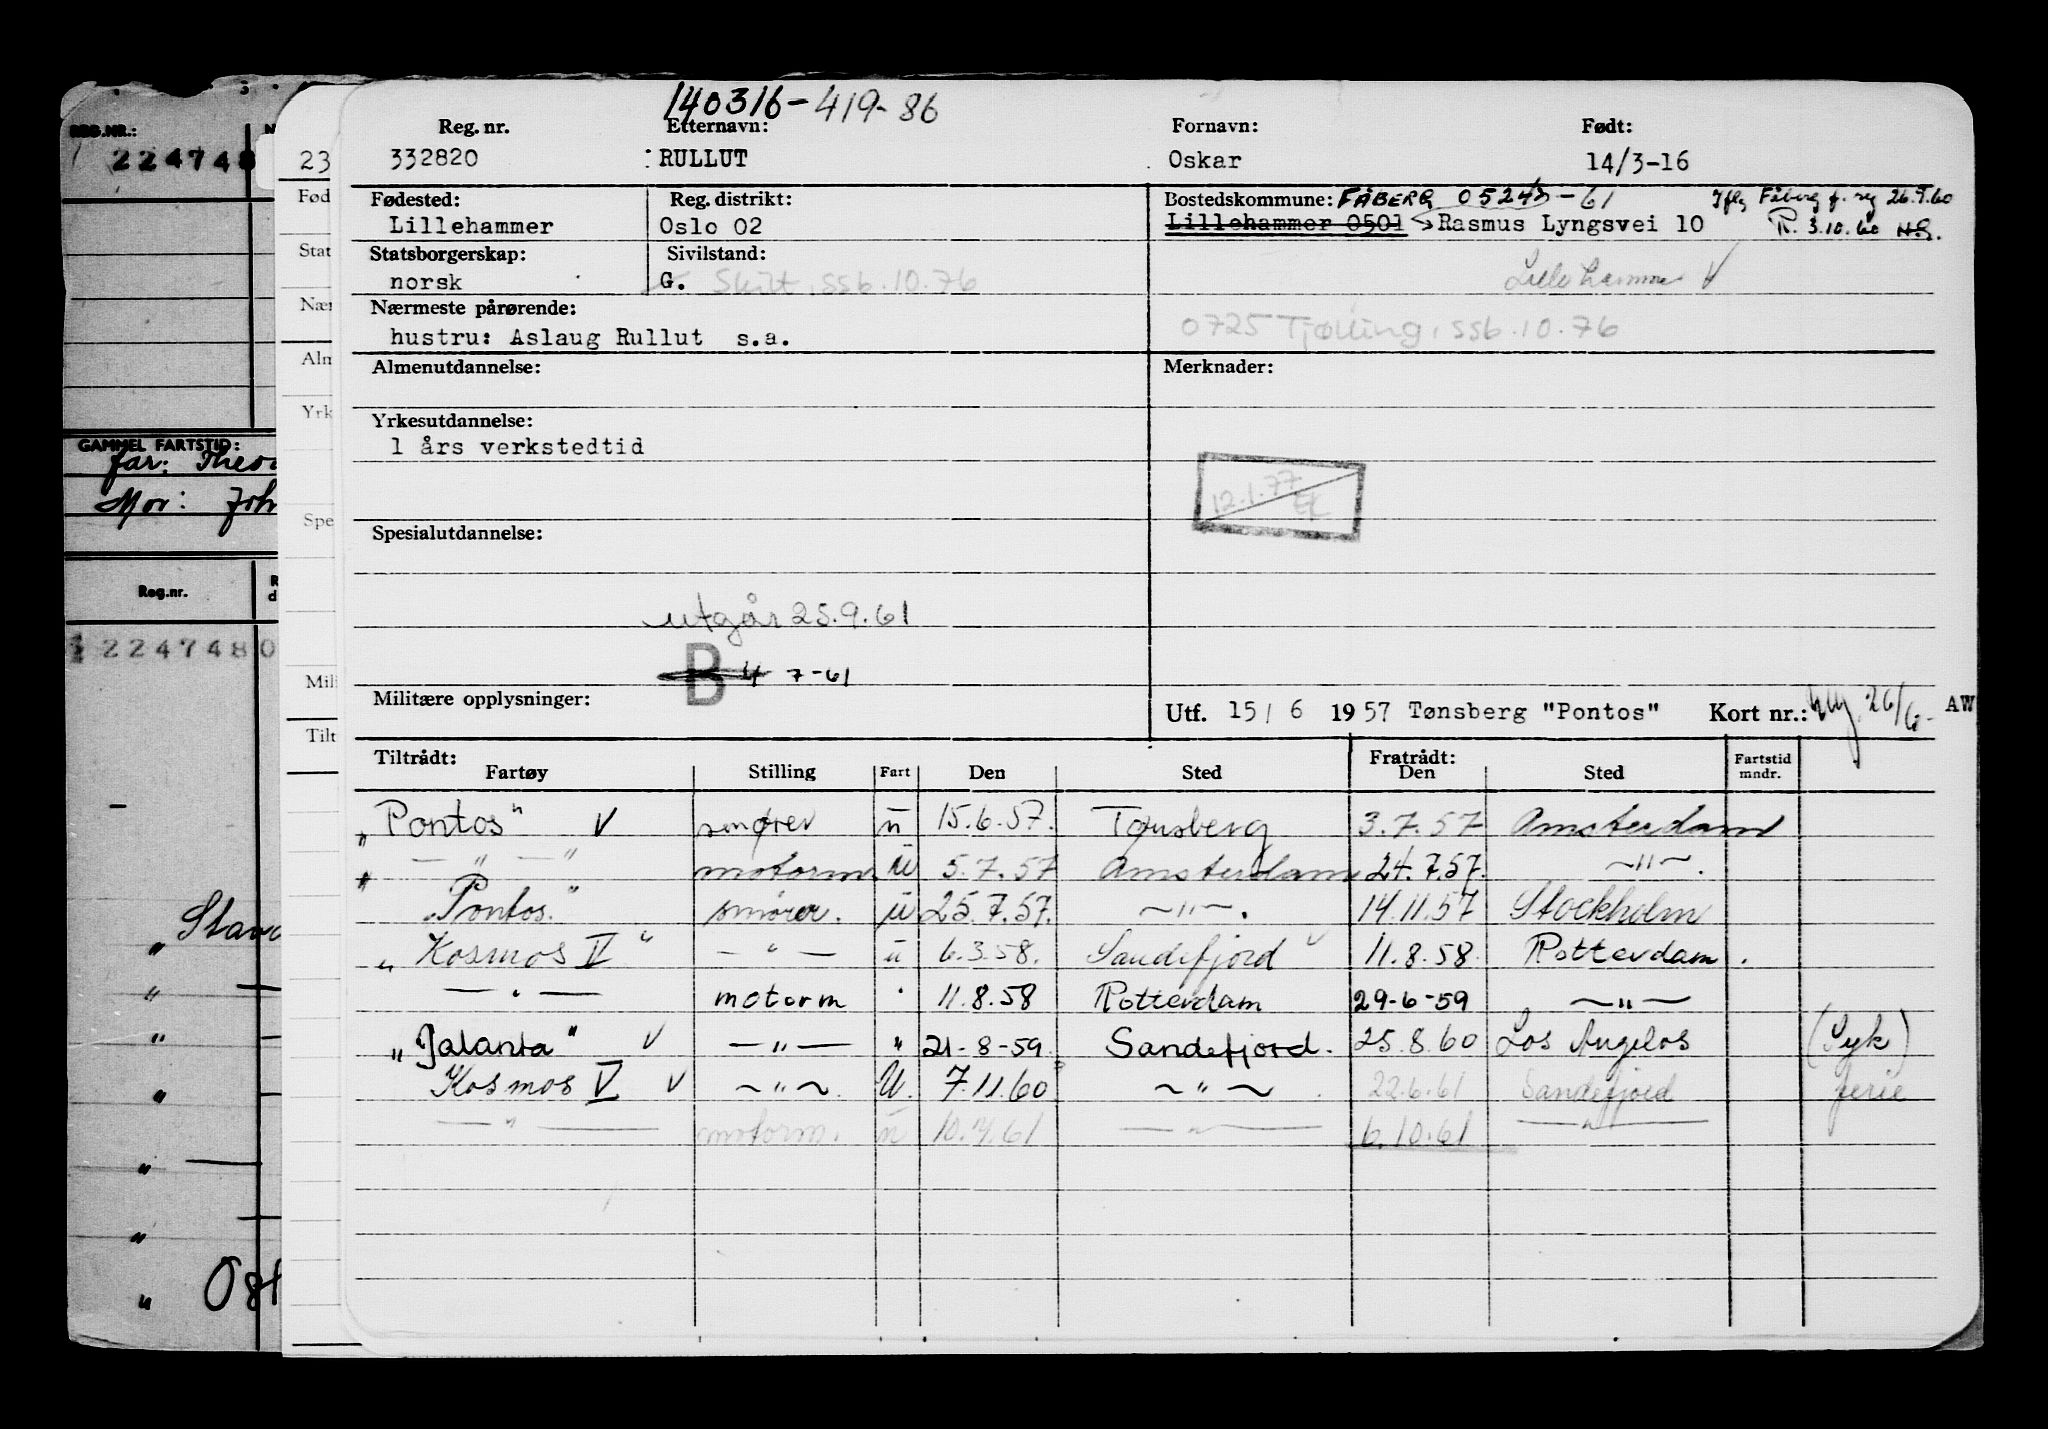 140316-419-86
Reg. nr. Etternavn: Fornavn: Født:
332820 RULLUT Oskar 14/3-16
Fødested: Reg. distrikt: Bostedskommune: FÅBERG 0524 -61 Iflg Fåberg f. reg 26.9.60
Lillehammer Oslo 02 Lillehammer 0501 Rasmus Lyngsvei 10 R. 3.10.60 H.G.
Statsborgerskap: Sivilstand: Lillehammer V
norsk G. Skilt, ssb.10.76
Nærmeste pårørende:
hustru: Aslaug Rullut s.a. 0725 Tjølling, ssb.10.76
Almenutdannelse: Merknader:
Yrkesutdannelse:
1 års verkstedtid
12.1.77 EK
Spesialutdannelse:
utgår 25.9.61
B 4 7-61
Militære opplysninger:
Utf. 15/ 6 1957 Tønsberg "Pontos" Kort nr.: 26/6- AW
Tiltrådt: Fratrådt:
Fartøy Stilling Fart Den Sted Den Sted Fartstid mndr.
„Pontos" V smører u 15.6.57. Tønsberg 3.7.57 Amsterdam
" — " — " motorm. u 5.7.57 Amsterdam 24.7.57. —"—.
„Pontos." smører. u 25.7.57. —"—. 14.11.57 Stockholm
„Kosmos V" — " — u 6.3.58. Sandefjord V 11.8.58 Rotterdam.
— " — motorm " 11.8.58 Rotterdam 29-6-59 —"—
„Jalanta" V —"— " 21-8-59. Sandefjord. 25.8.60 Los Angelos (Syk)
Kosmos V V —"— U. 7.11.60 —"— 22.6.61 Sandefjord ferie
— " — motorm. u 10.7.61 — " — 6.10.61 — " —
REG.NR.: N
224748
GAMMEL FARTSTID:
far: Theo
Mor: Joh
Reg.nr. R d
2247480
„ Stava
"
"
"
"
"
" Osl
23
Fød
Stat
Nær
Alm
Yrk
Spe
Mil
Tilt